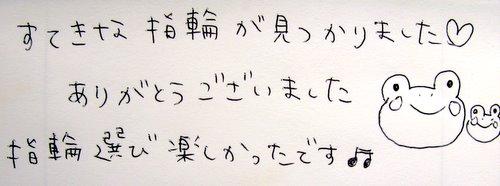 すてきな指輪が見つかりました♡
ありがとうございました
指輪選び楽しかったです♫